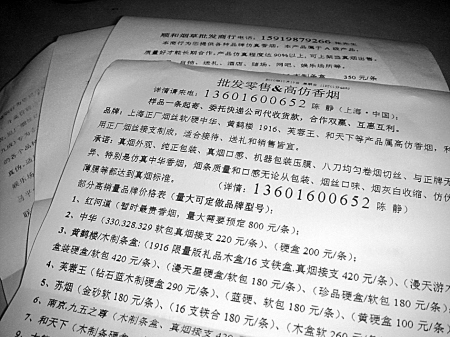 顺和烟草批发商行电话：15919879266
本商行为您提供各种品牌仿真香烟，本产品属于A级产品，
质量好才能长期合作，产品仿真程度达90%以上，可上柜当真烟出售，
自抽、送礼、酒店、赌场、网吧、娱乐场所等。
木制条盒 350元/条
批发零售&高仿香烟
详情请来电：13601600652 陈 静（上海·中国）；
样品一条起寄、委托快递公司代收货款，合作双赢、互惠互利。
品牌：上海正厂烟丝软/硬中华、黄鹤楼 1916、芙蓉王、和天下等产品属高仿香烟，利
用正厂烟丝接支制成，适合接待、送礼和销售皆宜。
承诺：真烟外观、纯正包装、真烟口感、机器包装压膜、八刀均匀卷烟切丝、与正牌无
异、特别是仿真中华香烟，烟条质量和口感无论从包装、烟丝口味、烟灰白收缩、仿伪
薄膜等都达到真烟标准。 （详情：13601600652 陈 静）
部分高销量品牌价格表（量大可定做品牌型号）；
1、红河道（暂时最贵香烟，量大需要预定 800 元/条）；
2、中华（330.328.329 软包真烟接支 220 元/条）、（硬盒 200 元/条）；
3、黄鹤楼/木制条盒：（1916 限量版礼品木盒/16 支铁盒.真烟接支 420 元/条）、（漫天游木
盒装硬盒 420 元/条）、（漫天星硬盒/软包 180 元/条）、（珍品硬盒/软包 180 元/条）
4、芙蓉王（钻石蓝木制硬盒 290 元/条）、（蓝硬、软包 180 元/条）、（黄硬盒 100 元/条）
5、苏烟（金砂软 180 元/条）、（16 支铁合 180 元/条）、（木盒软 260 元/
6、南京.九五之尊（木制条盒、真烟接支 420
7、和天下（木制条硬